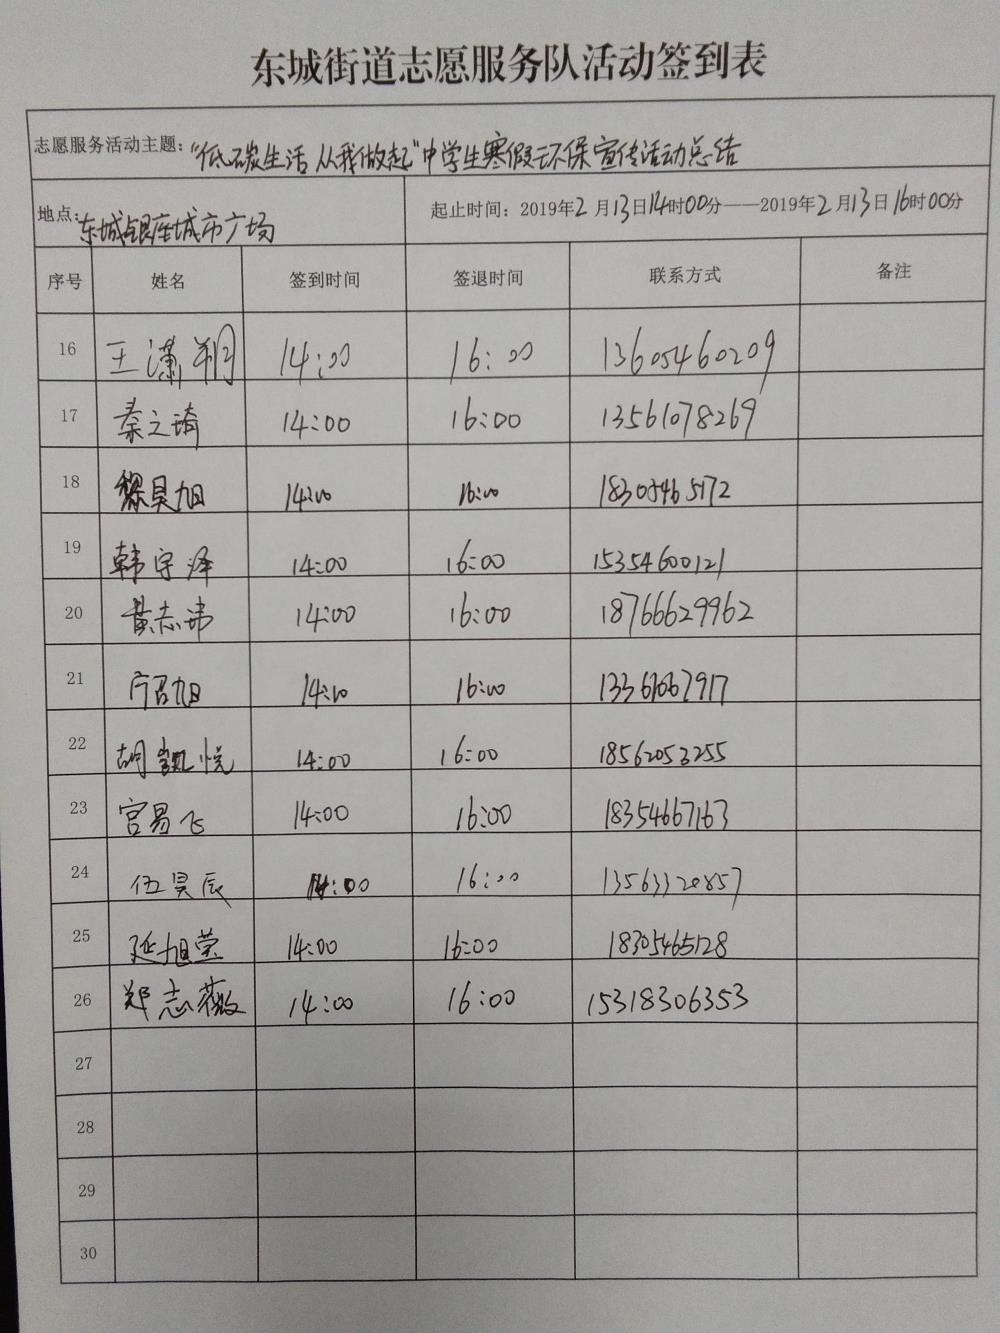 东城街道志愿服务队活动签到表
志愿服务活动主题："低碳生活 从我做起"中学生寒假环保宣传活动总结
地点：东城银座城市广场 起止时间：2019年2月13日14时00分——2019年2月13日16时00分
序号 姓名 签到时间 签退时间 联系方式 备注
16 王潇翔 14:00 16:00 13605460209
17 秦之琦 14:00 16:00 13561078269
18 昊旭 14:00 16:00 18305465172
19 韩宇泽 14:00 16:00 15354600121
20 黄志玮 14:00 16:00 18766629962
21 旭 14:00 16:00 13361067917
22 胡凯悦 14:00 16:00 18562053255
23 宫易飞 14:00 16:00 18354667163
24 伍昊辰 14:00 16:00 13563320857
25 延旭莹 14:00 16:00 18305465128
26 郑志薇 14:00 16:00 15318306353
27
28
29
30